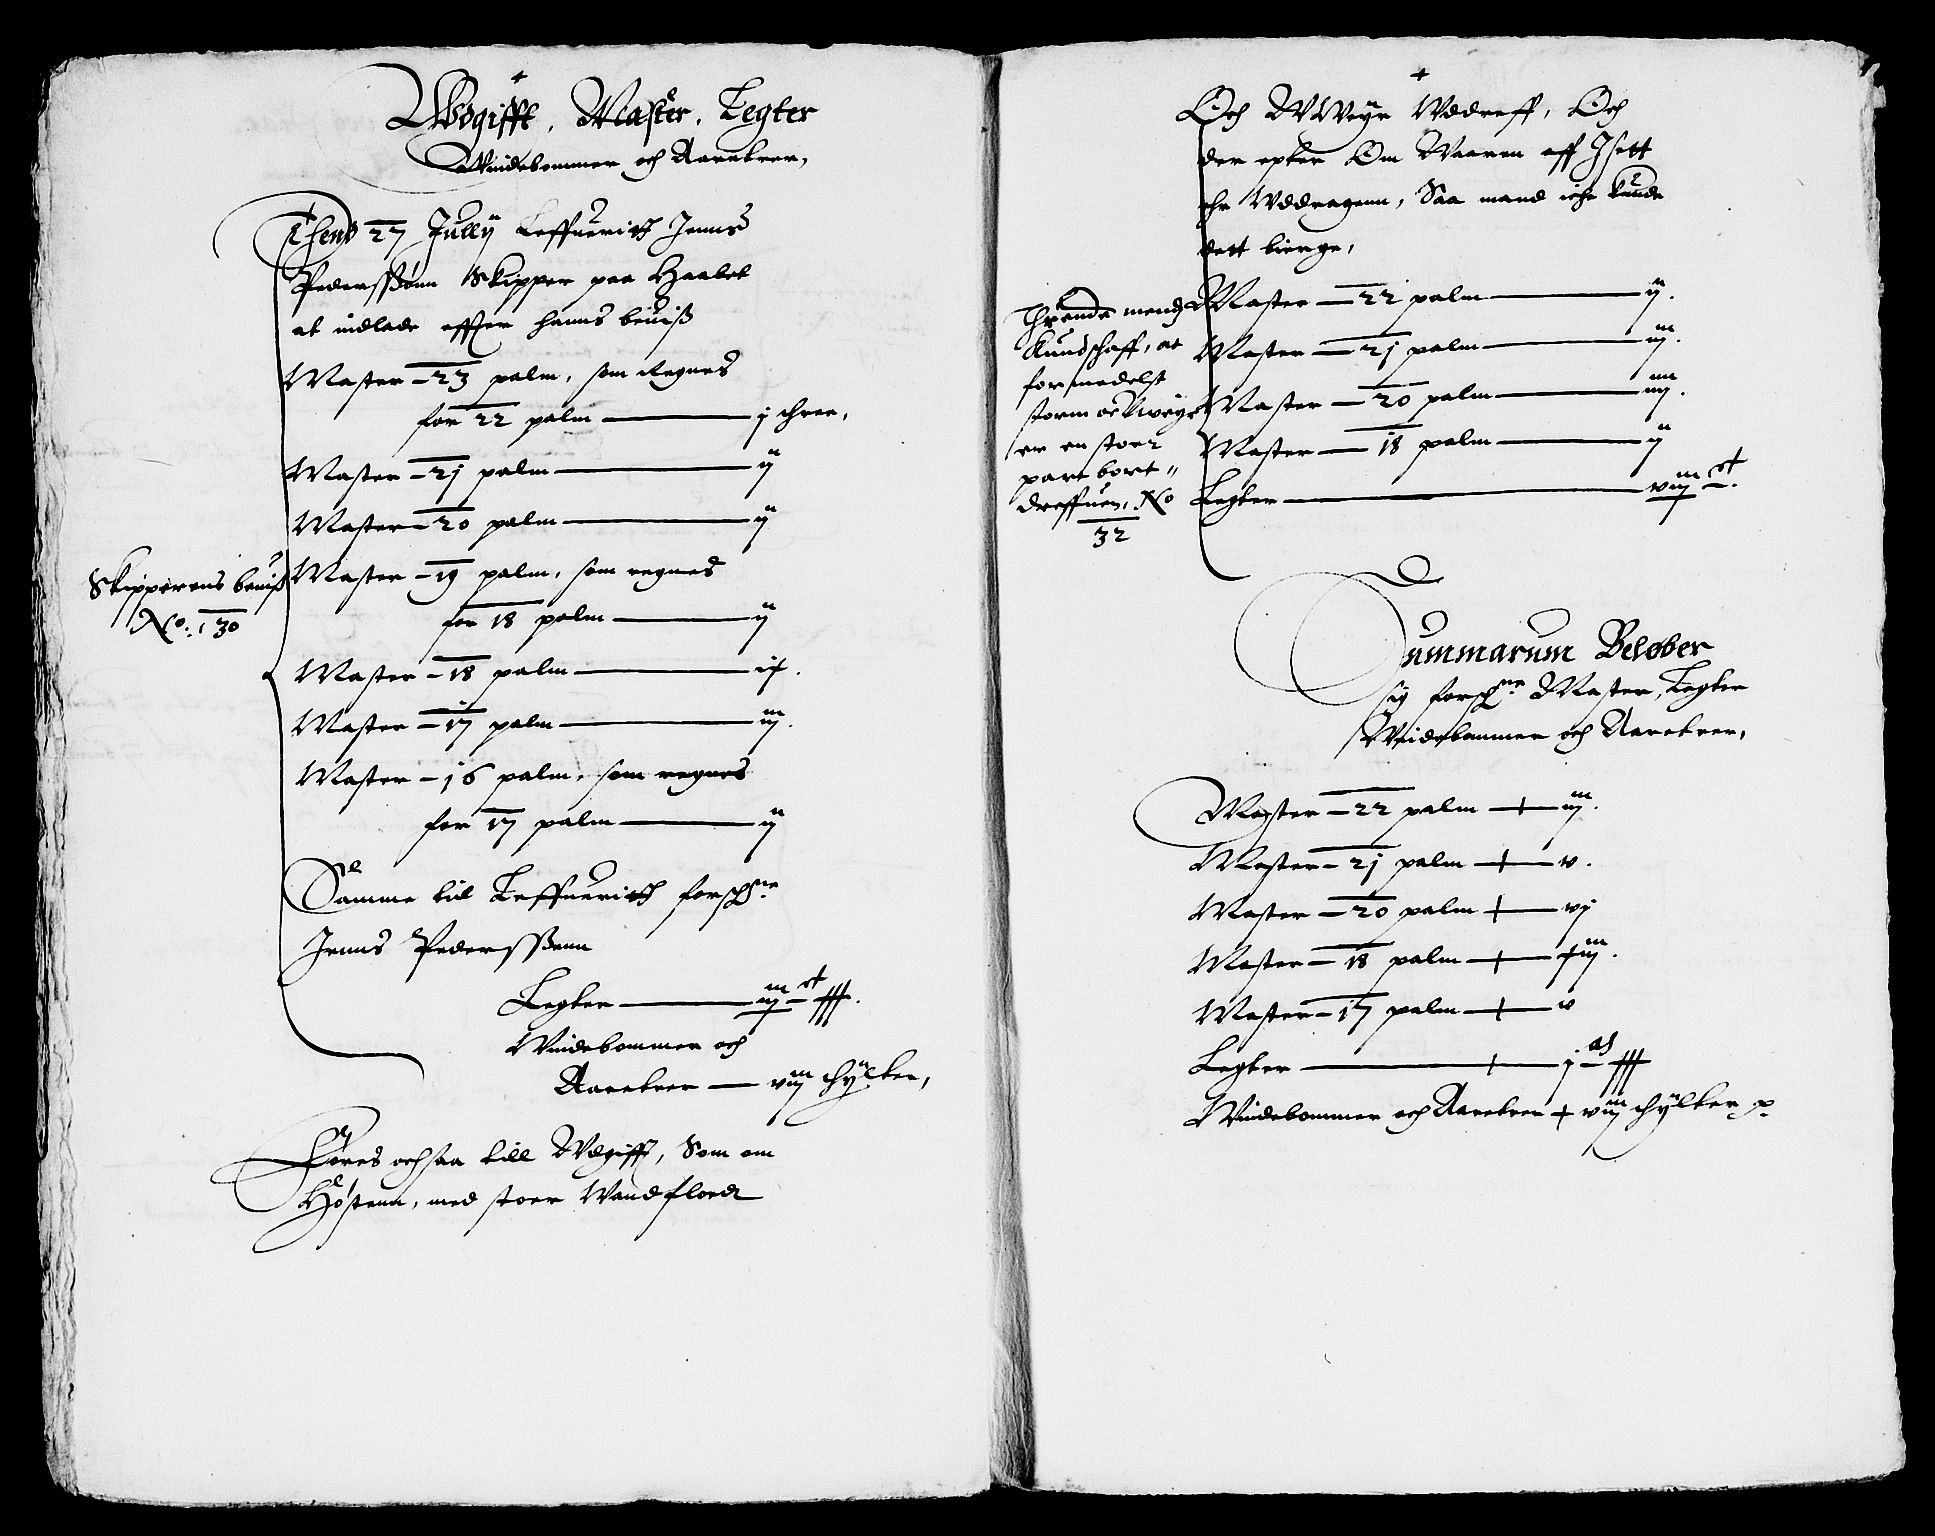 Wdgifft, Master, Legter
Windebommer och Aaretrer,
Thend 27 Jullij Leffuerith Jenns
Pederssønn Skipper paa Haabet
at indlade effter hanns beuiß
Master – 23 palm, som Regnes
for 22 palm — j three,
Master – 21 palm — ij
Master – 20 palm — ij
Skipperens beuiß
No. 30
Master – 19 palm, som regnes
for 18 palm — ij
Master – 18 palm — ix.
Master – 17 palm — iij.
Master – 16 palm, som regnes
for 17 palm — ij
Samme tid Leffuerith forschne
Jenns Pederssenn
Legter — iij st
Windebommer och
Aaretrer — viij thÿlter,
Føres ochsaa till Wdgifft, Som om
Høstenn, med stoer Wandflodt
Och WWeyr Wddreff, Och
der epter Om Waaren aff Isett
ehr Wddragenn, Saa mand iche kunde
dett bierge,
Thrende mendz
Kundschaff, at
formedelst
storm oc Uweyr
er en stoer
part bort"
dreffuen, No
32
Master — 22 palm — ij.
Master — 21 palm — iij.
Master — 20 palm — iiij.
Master — 18 palm — ij
Legter — viij st.
Summarum Beløber
sig forschne Master, Legter
Windebommer och Aaretrer,
Master – 22 palm — iij.
Master – 21 palm — v.
Master – 20 palm — vj
Master – 18 palm — xiij.
Master – 17 palm — v
Legter — j
Windebommer och Aaretrer + viij thÿlter